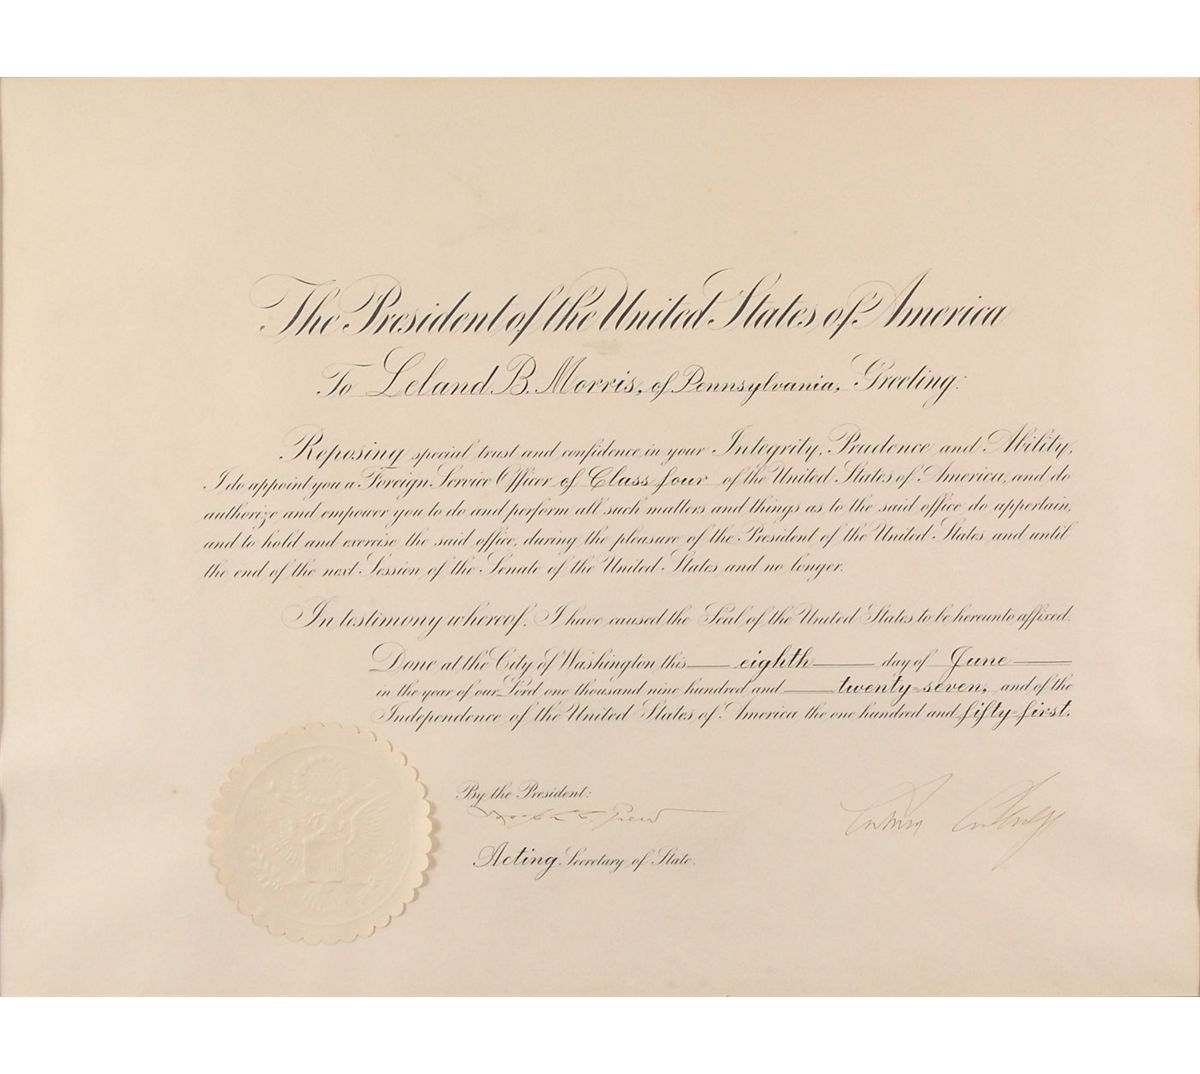 The President of the United States of America
To Leland B. Morris, of Pennsylvania, Greeting:
Reposing special trust and confidence in your Integrity, Prudence and Ability,
I do appoint you a Foreign Service Officer of Class four of the United States of America, and do
authorize and empower you to do and perform all such matters and things as to the said office do appertain,
and to hold and exercise the said office, during the pleasure of the President of the United States and until
the end of the next Session of the Senate of the United States and no longer.
In testimony whereof, I have caused the Seal of the United States to be hereunto affixed.
Done at the City of Washington this eighth day of June
in the year of our Lord one thousand nine hundred and twenty-seven, and of the
Independence of the United States of America the one hundred and fifty-first.
By the President:
Joseph C. Grew
Calvin Coolidge
Acting Secretary of State.